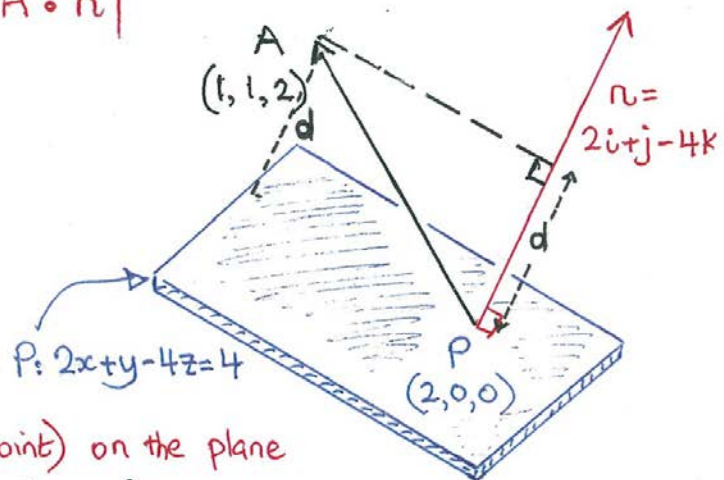 A • n|
A
(1, 1, 2)
d
n =
2i+j-4k
d
P: 2x+y-4z=4
P
(2,0,0)
on the plane